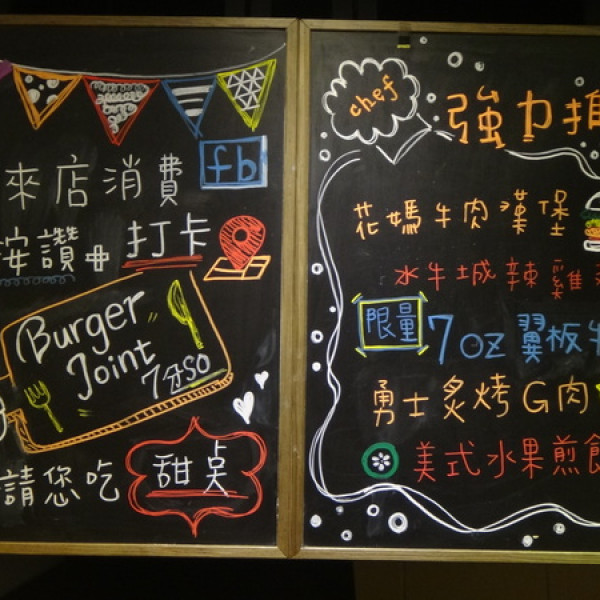 來店消費 fb
按讚+打卡
Burger
Joint
7分so
請您吃 甜點
chef 強力推
花媽牛肉漢堡
水牛城辣雞
限量 7oz 翼板牛
勇士炙烤G肉
美式水果煎餅